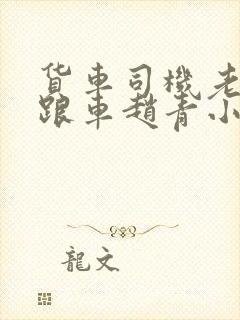 货车司機老
跟車趙青小
龍文